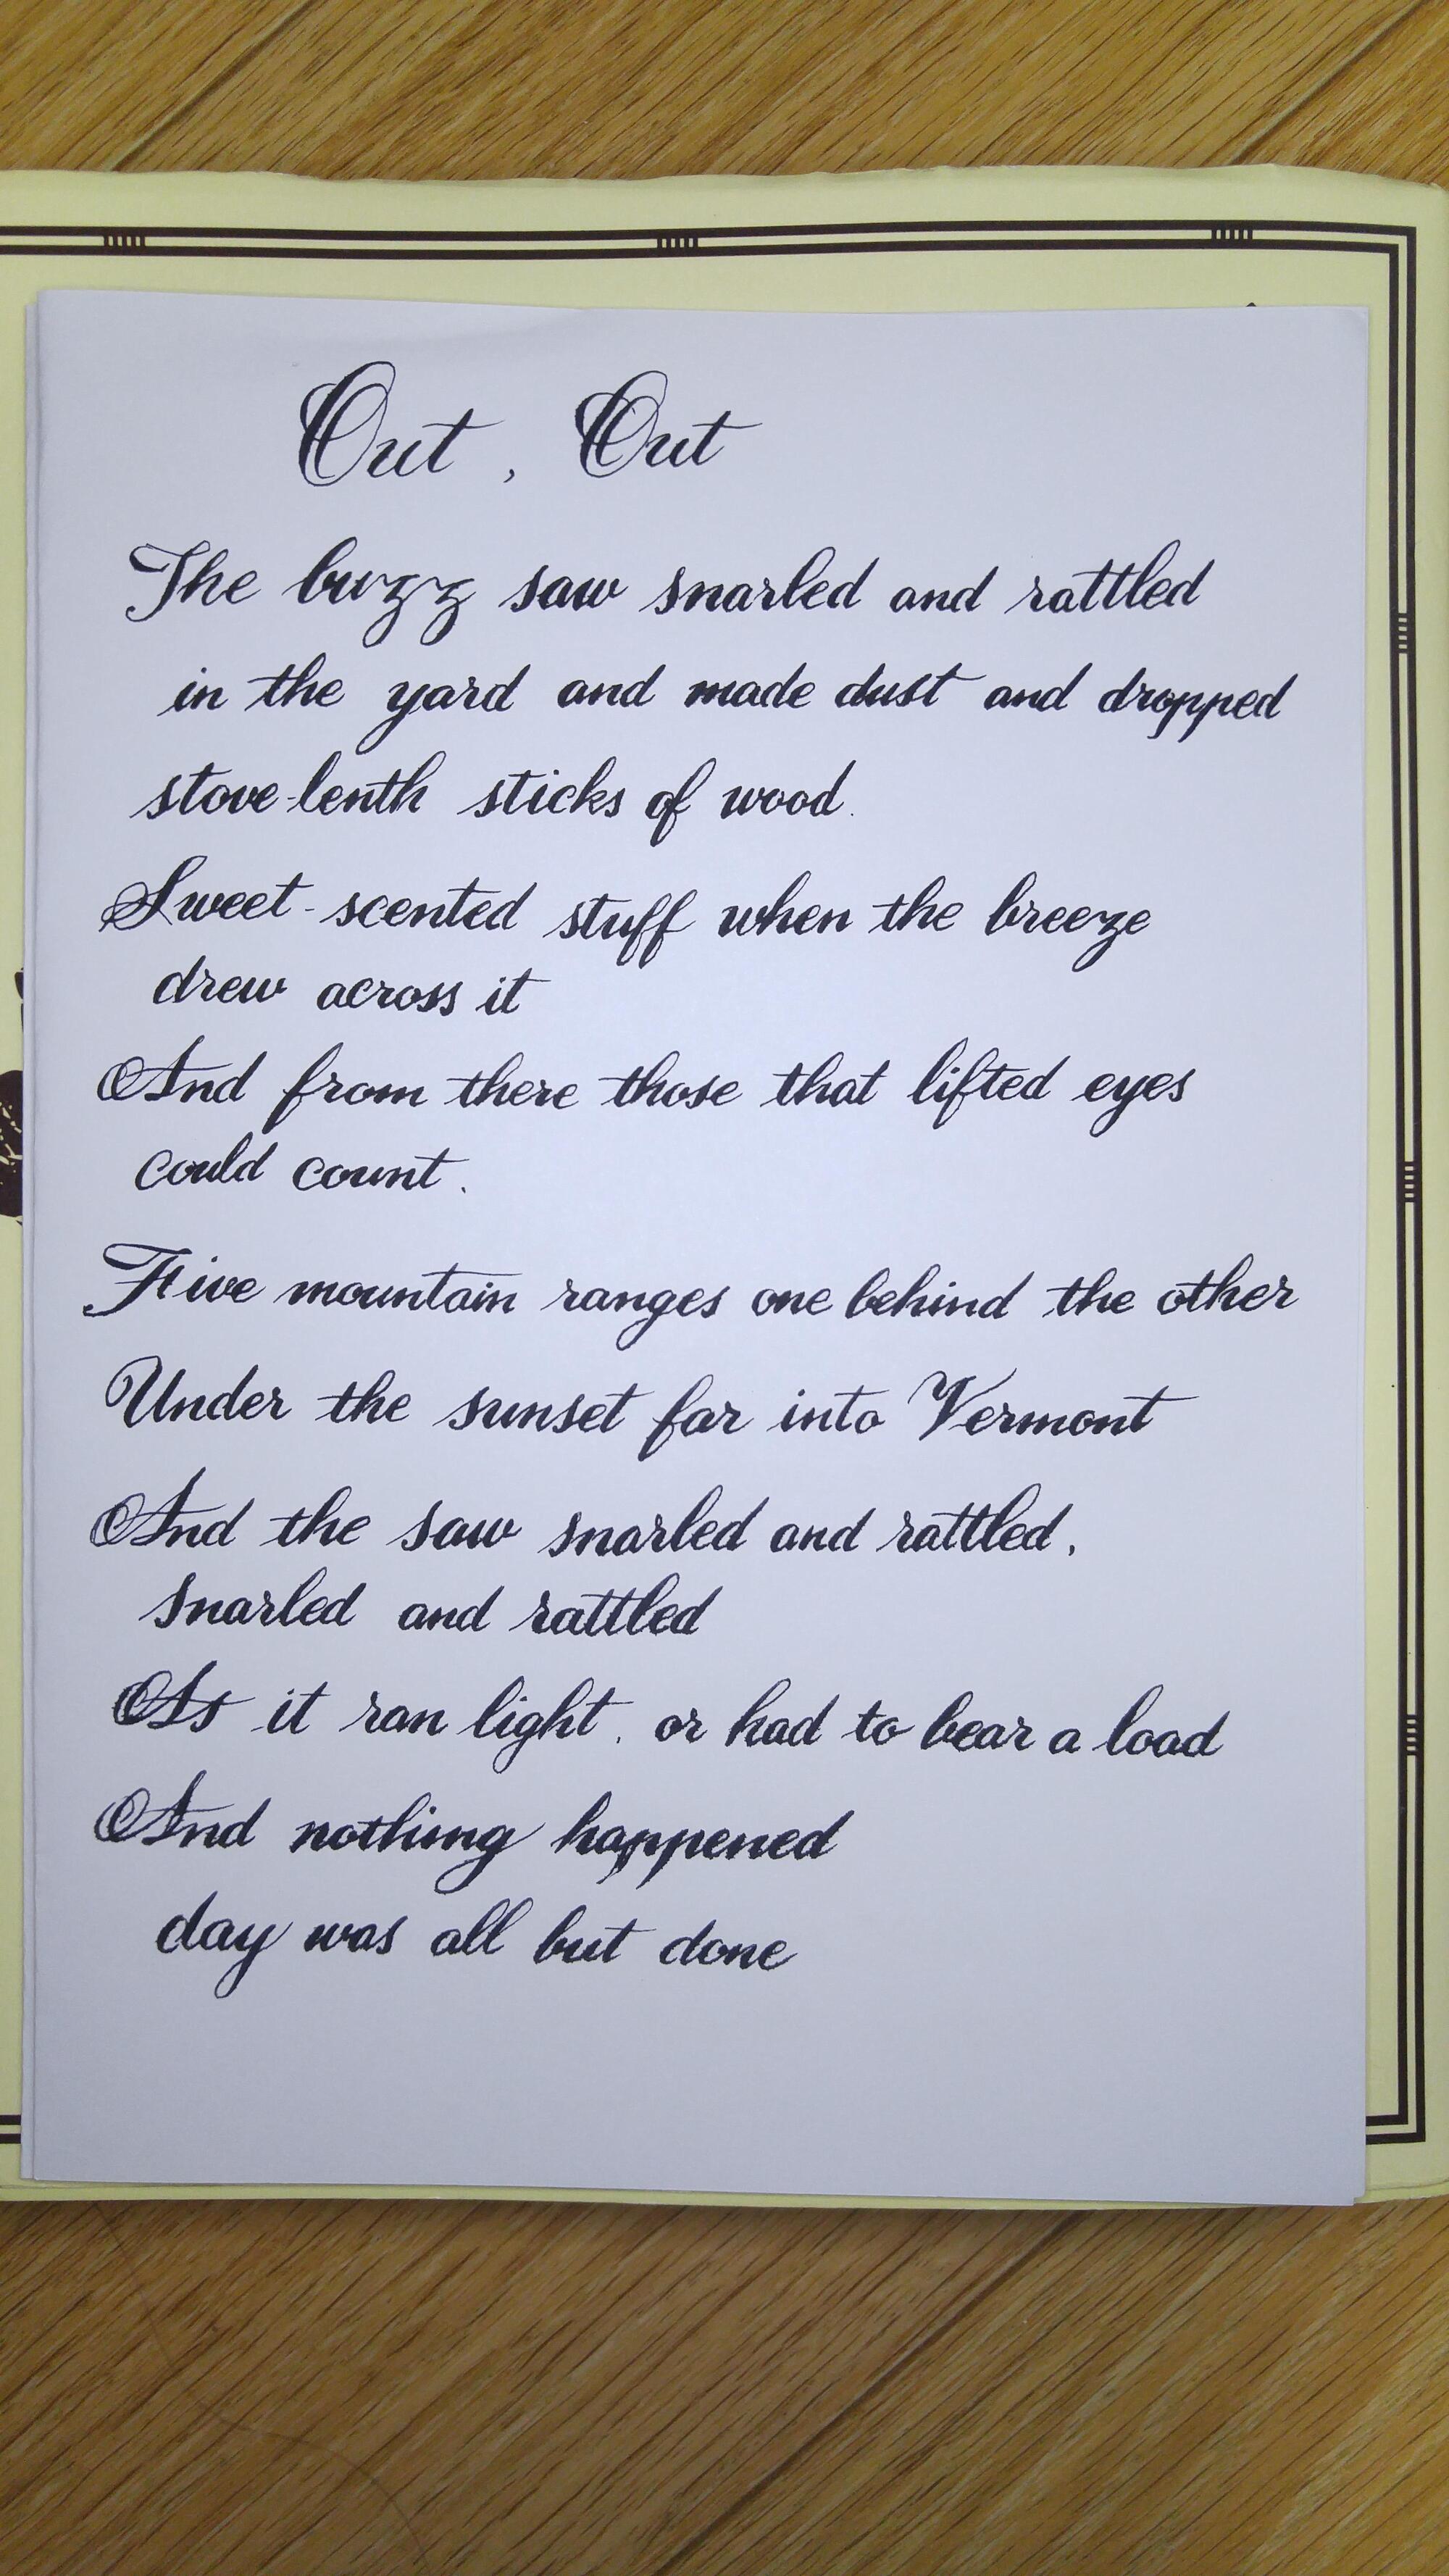 Out, Out
The buzz saw snarled and rattled
in the yard and made dust and dropped
stove-lenth sticks of wood.
Sweet-scented stuff when the breeze
drew across it
And from there those that lifted eyes
could count.
Five mountain ranges one behind the other
Under the sunset far into Vermont
And the saw snarled and rattled,
snarled and rattled
As it ran light, or had to bear a load
And nothing happened
day was all but done